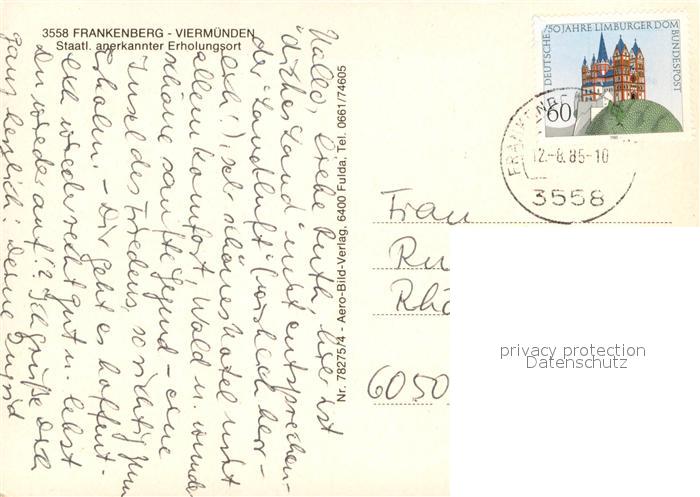 3558 FRANKENBERG - VIERMÜNDEN
Staatl. anerkannter Erholungsort
Hallo, liebe Ruth, hier ist
"dickes Land" mit entsprechen-
der Landluft (wirklich herr-
lich!), sehr schönes Hotel mit
allem Komfort, Wald u. wunder
schöne sanfte Gegend - eine
Insel des Friedens, so richtig zum
Erholen. - Dir geht es hoffent-
lich wieder recht gut u. lebst
Du wieder auf!? Ich grüße Dich
ganz herzlich! Deine Ingrid
Nr. 78275/4 - Aero-Bild-Verlag, 6400 Fulda, Tel. 0661/74605
DEUTSCHE BUNDESPOST
750 JAHRE LIMBURGER DOM
60
1985
12.-8.85-10
3558
Frau
Ru
Rhö
6050
privacy protection
Datenschutz